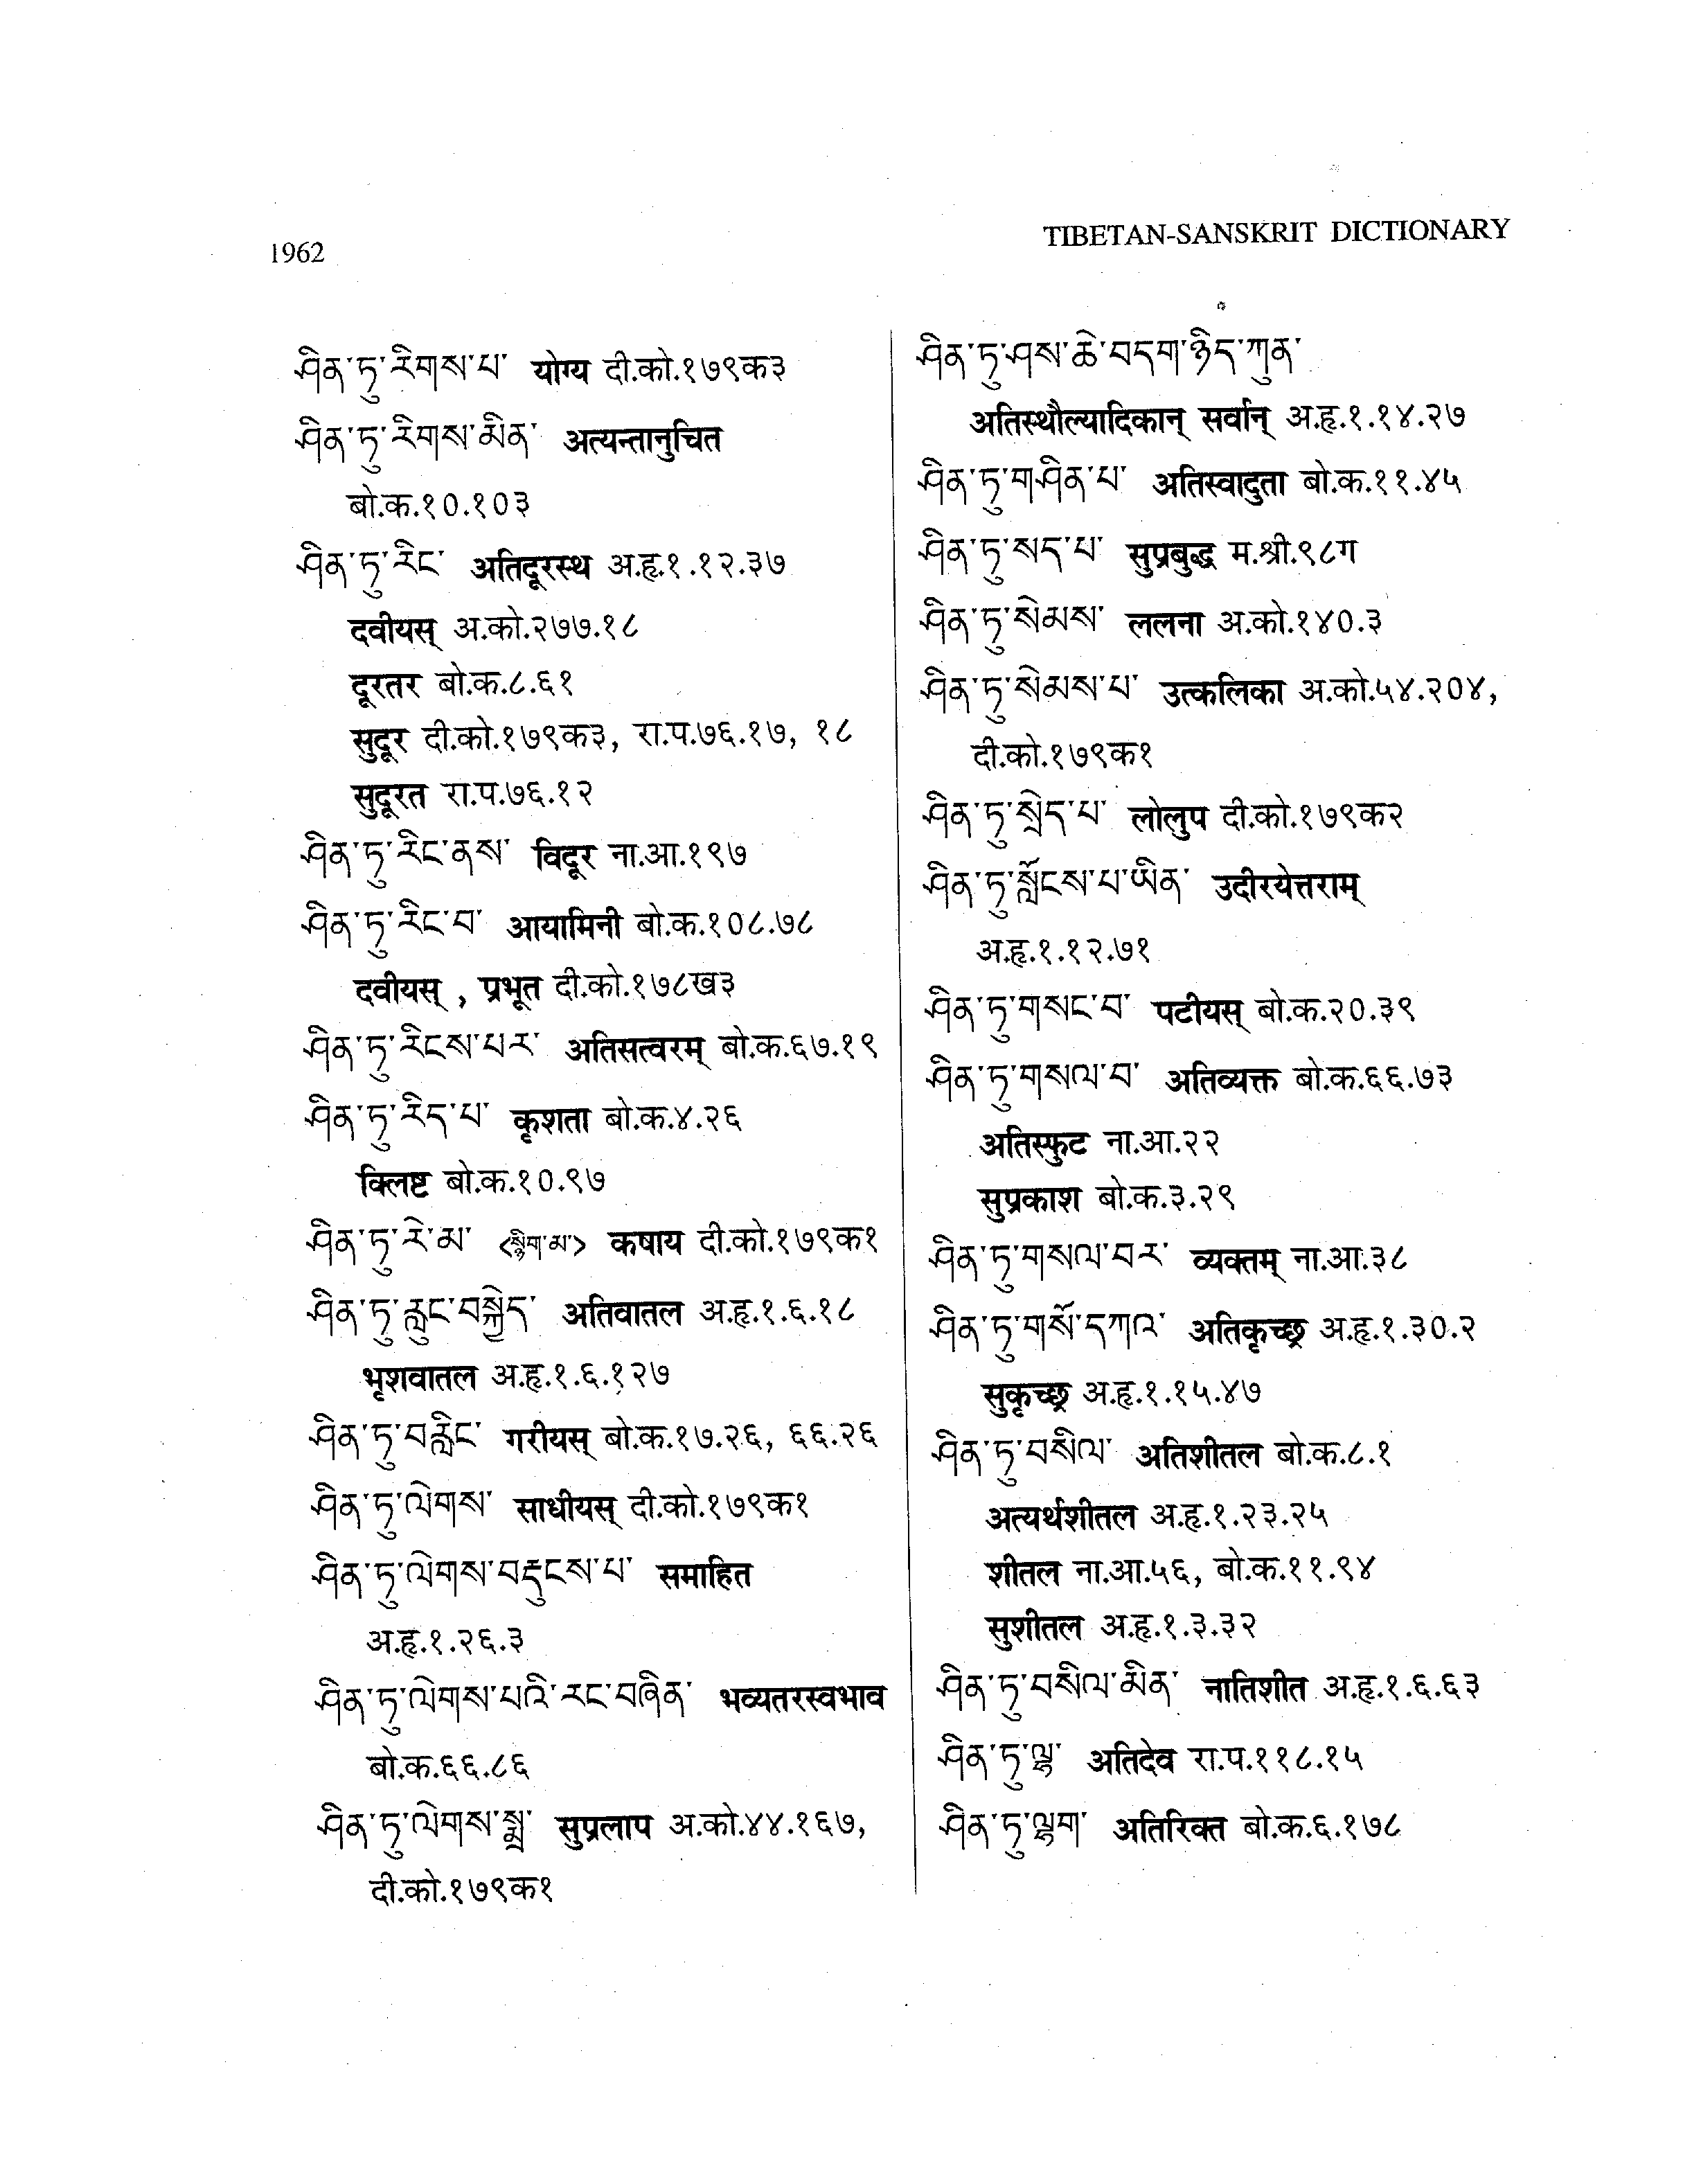 1962
TIBETAN-SANSKRIT DICTIONARY
ཤིན་ཏུ་རིགས་པ་ योग्य दी.को.१७९क३
ཤིན་ཏུ་རིགས་མིན་ अत्यन्तानुचित
बो.क.१०.१०३
ཤིན་ཏུ་རིང་ अतिदूरस्थ अ.हृ.१.१२.३७
दवीयस् अ.को.२७७.१८
दूरतर बो.क.८.६१
सुदूर दी.को.१७९क३, रा.प.७६.१७, १८
सुदूरत रा.प.७६.१२
ཤིན་ཏུ་རིང་ནས་ विदूर ना.आ.१९७
ཤིན་ཏུ་རིང་བ་ आयामिनी बो.क.१०८.७८
दवीयस् , प्रभूत दी.को.१७८ख३
ཤིན་ཏུ་རིངས་པར་ अतिसत्वरम् बो.क.६७.१९
ཤིན་ཏུ་རིད་པ་ कृशता बो.क.४.२६
क्लिष्ट बो.क.१०.९७
ཤིན་ཏུ་རེ་མ་ <སྙིག་མ་> कषाय दी.को.१७९क१
ཤིན་ཏུ་རླུང་བསྐྱེད་ अतिवातल अ.हृ.१.६.१८
भृशवातल अ.हृ.१.६.१२७
ཤིན་ཏུ་བརླིང་ गरीयस् बो.क.१७.२६, ६६.२६
ཤིན་ཏུ་ལེགས་ साधीयस् दी.को.१७९क१
ཤིན་ཏུ་ལེགས་བརྡུངས་པ་ समाहित
अ.हृ.१.२६.३
ཤིན་ཏུ་ལེགས་པའི་རང་བཞིན་ भव्यतरस्वभाव
बो.क.६६.८६
ཤིན་ཏུ་ལེགས་སྨྲ་ सुप्रलाप अ.को.४४.१६७,
दी.को.१७९क१
ཤིན་ཏུ་ཤས་ཆེ་བདག་ཉིད་ཀུན་
अतिस्थौल्यादिकान् सर्वान् अ.हृ.१.१४.२७
ཤིན་ཏུ་གཤིན་པ་ अतिस्वादुता बो.क.११.४५
ཤིན་ཏུ་སད་པ་ सुप्रबुद्ध म.श्री.९८ग
ཤིན་ཏུ་སེམས་ ललना अ.को.१४०.३
ཤིན་ཏུ་སེམས་པ་ उत्कलिका अ.को.५४.२०४,
दी.को.१७९क१
ཤིན་ཏུ་སྲེད་པ་ लोलुप दी.को.१७९क२
ཤིན་ཏུ་སློངས་པ་ཡིན་ उदीरयेत्तराम्
अ.हृ.१.१२.७१
ཤིན་ཏུ་གསང་བ་ पटीयस् बो.क.२०.३९
ཤིན་ཏུ་གསལ་བ་ अतिव्यक्त बो.क.६६.७३
अतिस्फुट ना.आ.२२
सुप्रकाश बो.क.३.२९
ཤིན་ཏུ་གསལ་བར་ व्यक्तम् ना.आ.३८
ཤིན་ཏུ་གསོ་དཀའ་ अतिकृच्छ्र अ.हृ.१.३०.२
सुकृच्छ्र अ.हृ.१.१५.४७
ཤིན་ཏུ་བསིལ་ अतिशीतल बो.क.८.१
अत्यर्थशीतल अ.हृ.१.२३.२५
शीतल ना.आ.५६, बो.क.११.९४
सुशीतल अ.हृ.१.३.३२
ཤིན་ཏུ་བསིལ་མིན་ नातिशीत अ.हृ.१.६.६३
ཤིན་ཏུ་ལྷ་ अतिदेव रा.प.११८.१५
ཤིན་ཏུ་ལྷག་ अतिरिक्त बो.क.६.१७८